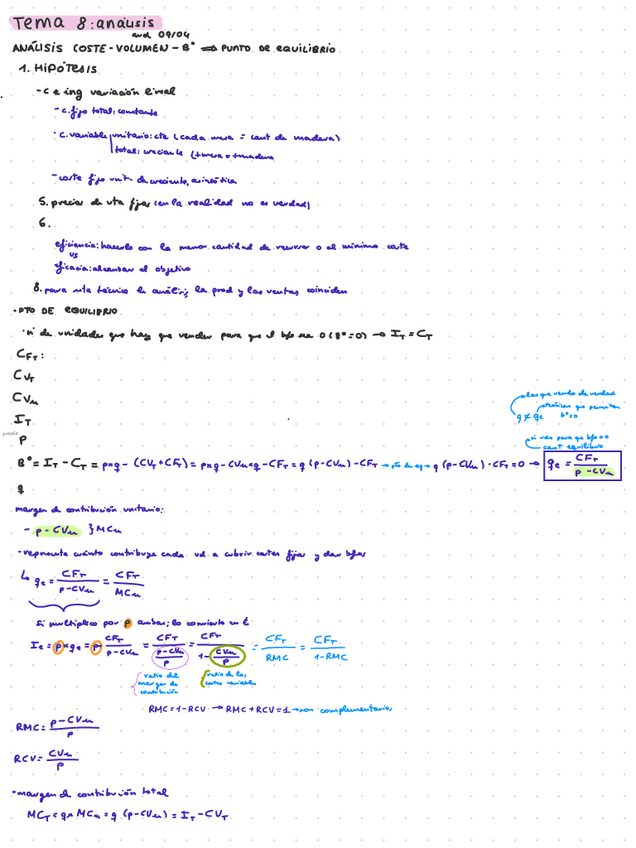 Tema 8: análisis
and 09/04
ANÁLISIS COSTE-VOLUMEN-Bº ⇒ PUNTO DE EQUILIBRIO
1. HIPÓTESIS
- c e ing variación lineal
- c. fijo total: constante
· c. variable unitario: cte (cada mesa = cant de madera)
total: creciente (+mesa = +madera
- coste fijo unit decreciente, asintótica
5. precios de vta fijos (en la realidad no es verdad)
6.
eficiencia: hacerlo con la menor cantidad de recursos o al mínimo coste
vs
eficacia: alcanzar el objetivo
8. para esta técnica de análisis la prod y las ventas coinciden
· PTO DE EQUILIBRIO
· nº de unidades que hay que vender para que el bfo sea 0 (Bº=0) → IT = CT
CFT:
CVT
CVu
IT
precio
P
las que vendo de verdad
q ≠ qe
teóricas que permiten
bº=0
ni uds para que bfo=0
cant equilibrio
Bº = IT - CT = p×q - (CVT + CFT) = p×q - CVu×q - CFT = q (p-CVu) - CFT → pto de eq → q (p-CVu) - CFT = 0 → qe = CFT / p-CVu
q
margen de contribución unitario:
- p - CVu } MCu
- representa cuánto contribuye cada ud. a cubrir costes fijos y dar bfos
↳ qe = CFT / p-CVu = CFT / MCu
Si multiplico por p ambas, lo convierto en €
Ie = p×qe = p · CFT / p-CVu = CFT / (p-CVu / p) = CFT / (1 - CVu / p) = CFT / RMC = CFT / 1-RMC
ratio del margen de contribución
ratio de los costes variables
RMC = 1-RCV → RMC + RCV = 1 → son complementarios
RMC = p-CVu / p
RCV = CVu / p
· margen de contribución total
MCT = q × MCu = q (p-CVu) = IT - CVT